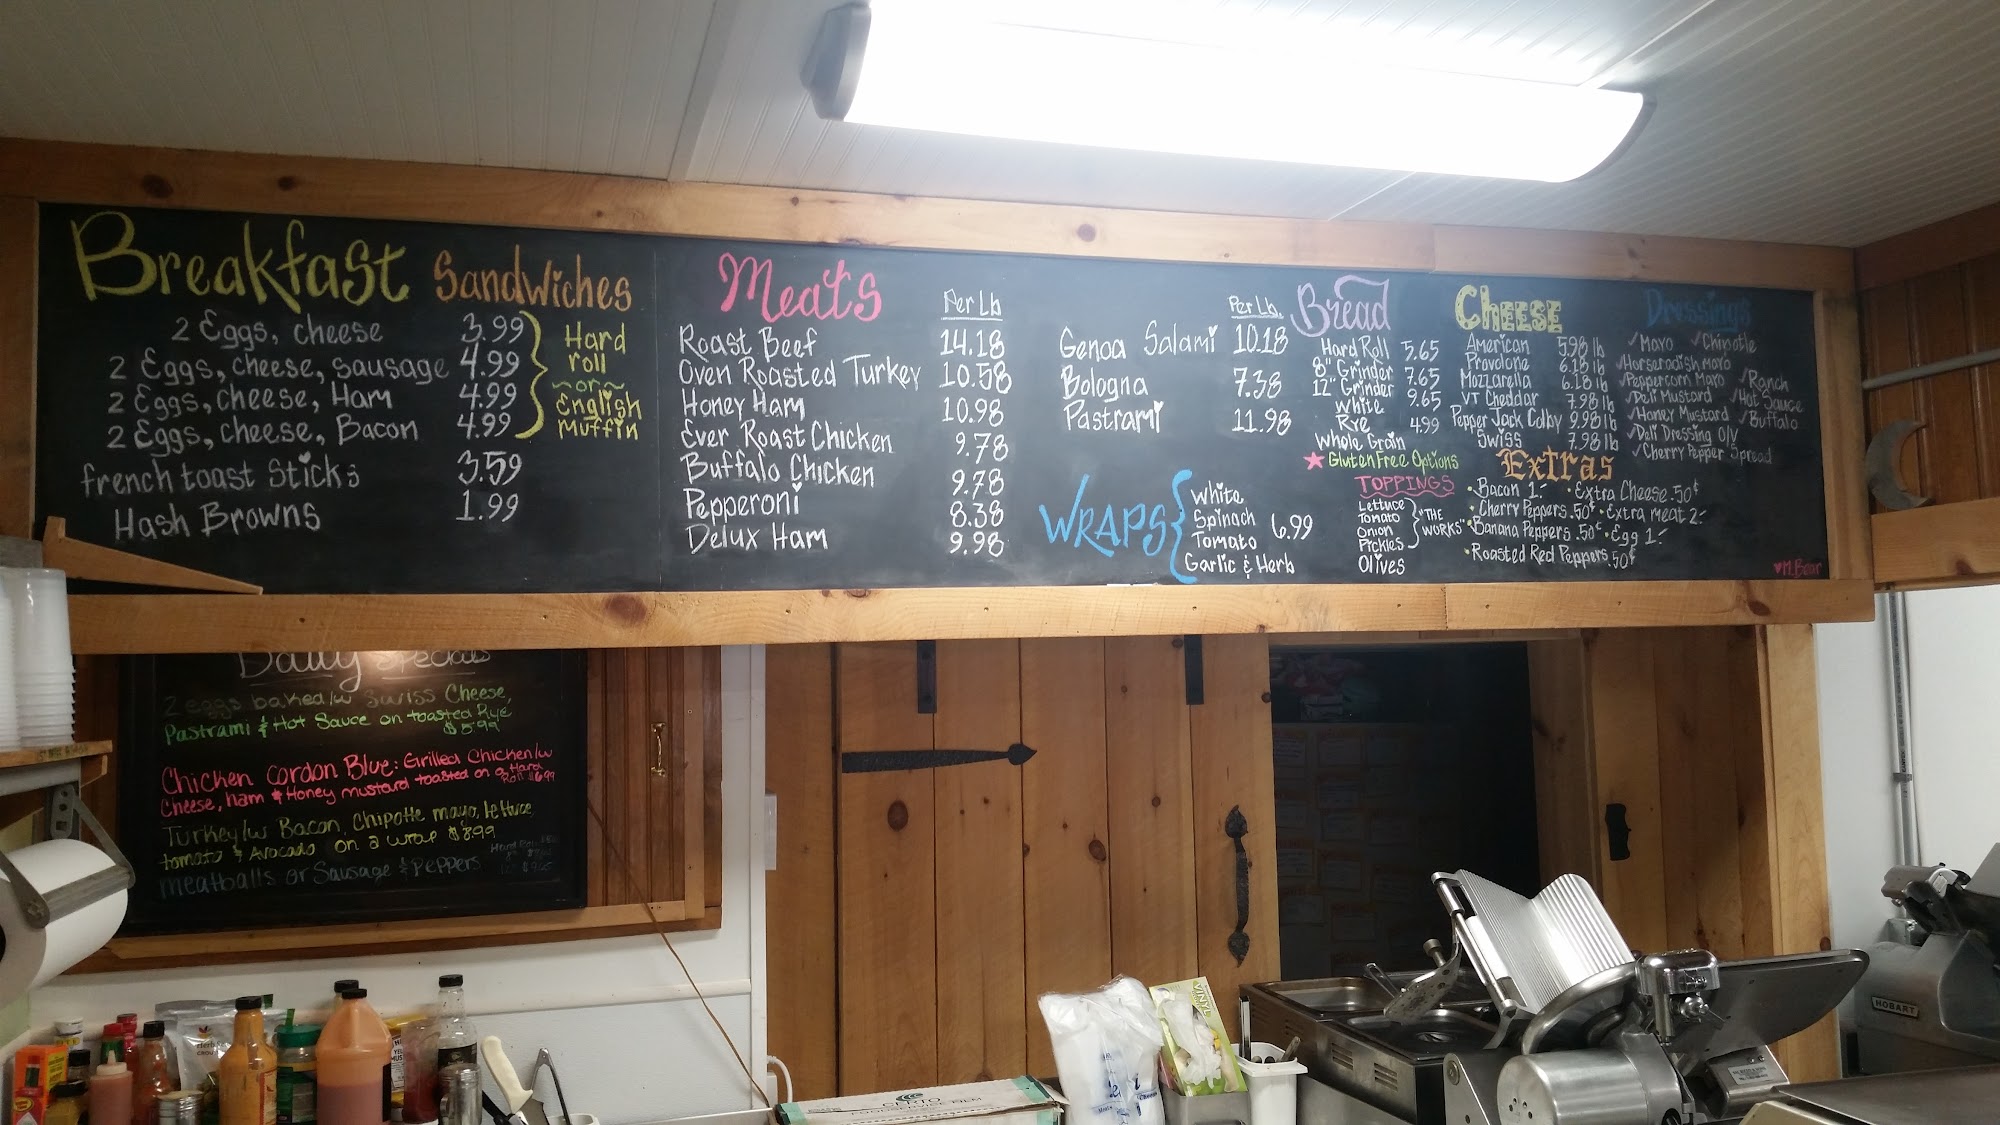 Breakfast Sandwiches
2 Eggs, cheese 3.99
2 Eggs, cheese, sausage 4.99
2 Eggs, cheese, Ham 4.99
2 Eggs, cheese, Bacon 4.99
french toast Sticks 3.59
Hash Browns 1.99
Hard
roll
~or~
English
muffin
Meats Per Lb
Roast Beef 14.18
Oven Roasted Turkey 10.58
Honey Ham 10.98
Ever Roast Chicken 9.78
Buffalo Chicken 9.78
Pepperoni 8.38
Delux Ham 9.98
Per Lb.
Genoa Salami 10.18
Bologna 7.38
Pastrami 11.98
WRAPS
White
Spinach 6.99
Tomato
Garlic & Herb
Bread
Hard Roll 5.65
8" Grinder 7.65
12" Grinder 9.65
White
Rye 4.99
Whole Grain
Gluten Free Options
TOPPINGS
Lettuce
Tomato
Onion
Pickles
"THE
WORKS"
Olives
Cheese
American 5.98 lb
Provolone 6.18 lb
Mozzarella 6.18 lb
VT Cheddar 7.98 lb
Pepper Jack Colby 9.98 lb
Swiss 7.98 lb
Extras
Bacon 1.- Extra Cheese .50¢
Cherry Peppers .50¢ Extra meat 2.-
Banana Peppers .50¢ Egg 1.-
Roasted Red Peppers .50¢
Dressings
✓Mayo ✓Chipotle
✓Horseradish Mayo
✓Peppercorn Mayo ✓Ranch
✓Deli Mustard ✓Hot Sauce
✓Honey Mustard ✓Buffalo
✓Deli Dressing O/V
✓Cherry Pepper Spread
♥M.Bear
Daily Specials
2 eggs baked/w Swiss Cheese,
Pastrami & Hot Sauce on toasted Rye
$5.99
Chicken Cordon Blue: Grilled Chicken/w
Cheese, ham & Honey mustard toasted on a Hard
Roll $6.99
Turkey/w Bacon, Chipotle mayo, lettuce
tomato & Avocado on a wrap $8.99
meatballs or Sausage & Peppers
HOBART
VINYL